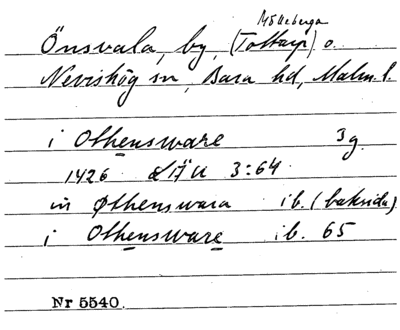 Mölleberga
Önsvala, by, (Tottarp) o.
Nevishög sn, Bara hd, Malm. l.
i Othensware 3g.
1426 LÄU 3:64
in Øthenswara ib. (baksida)
i Othensware ib. 65
Nr 5540.